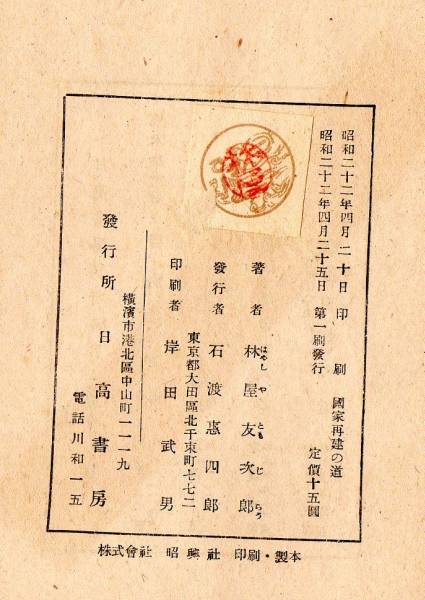 昭和二十二年四月二十日 印刷 國家再建の道
昭和二十二年四月二十五日 第一刷發行 定價十五圓
著者 林屋友次郎
はやしやともじらう
發行者 石渡惠四郎
東京都大田區北千束町七七二
印刷者 岸田武男
橫濱市港北區中山町一一一九
發行所 日高書房
電話川和一五
株式會社 昭興社 印刷・製本